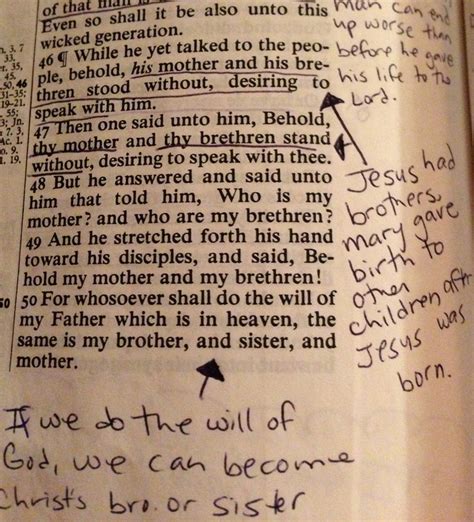 of that man is
Even so shall it be also unto this
wicked generation.
46 ¶ While he yet talked to the peo-
ple, behold, his mother and his bre-
thren stood without, desiring to
speak with him.
47 Then one said unto him, Behold,
thy mother and thy brethren stand
without, desiring to speak with thee.
48 But he answered and said unto
him that told him, Who is my
mother? and who are my brethren?
49 And he stretched forth his hand
toward his disciples, and said, Be-
hold my mother and my brethren!
50 For whosoever shall do the will of
my Father which is in heaven, the
same is my brother, and sister, and
mother.
3, 7
33.
35.
45.
50, 46
31-35;
19-21.
55;
7. 3,
1.
9.
19.
50
man can end
up worse than
before he gave
his life to the
Lord.
Jesus had
brothers,
mary gave
birth to
other
children after
Jesus was
born.
If we do the will of
God, we can become
Christ's bro. or sister